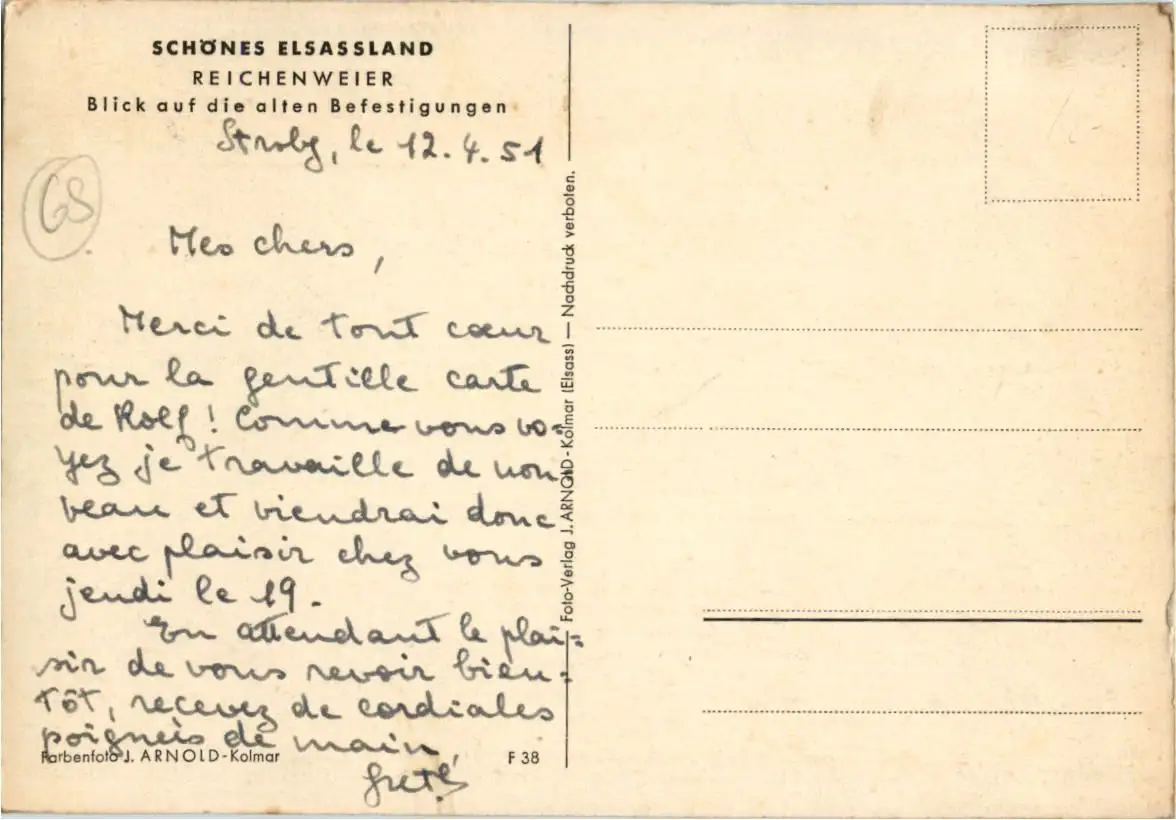 SCHÖNES ELSASSLAND
REICHENWEIER
Blick auf die alten Befestigungen
Strbg, le 12.4.51
GS
Mes chers,
Merci de tout cœur
pour la gentille carte
de Rolf! Comme vous vo=
yez je travaille de nou=
veau et viendrai donc
avec plaisir chez vous
jeudi le 19.
En attendant le plai=
sir de vous revoir bien=
tôt, recevez de cordiales
poignées de main,
Farbenfoto J. ARNOLD-Kolmar
F 38
Foto-Verlag J. ARNOLD-Kolmar (Elsass) — Nachdruck verboten.